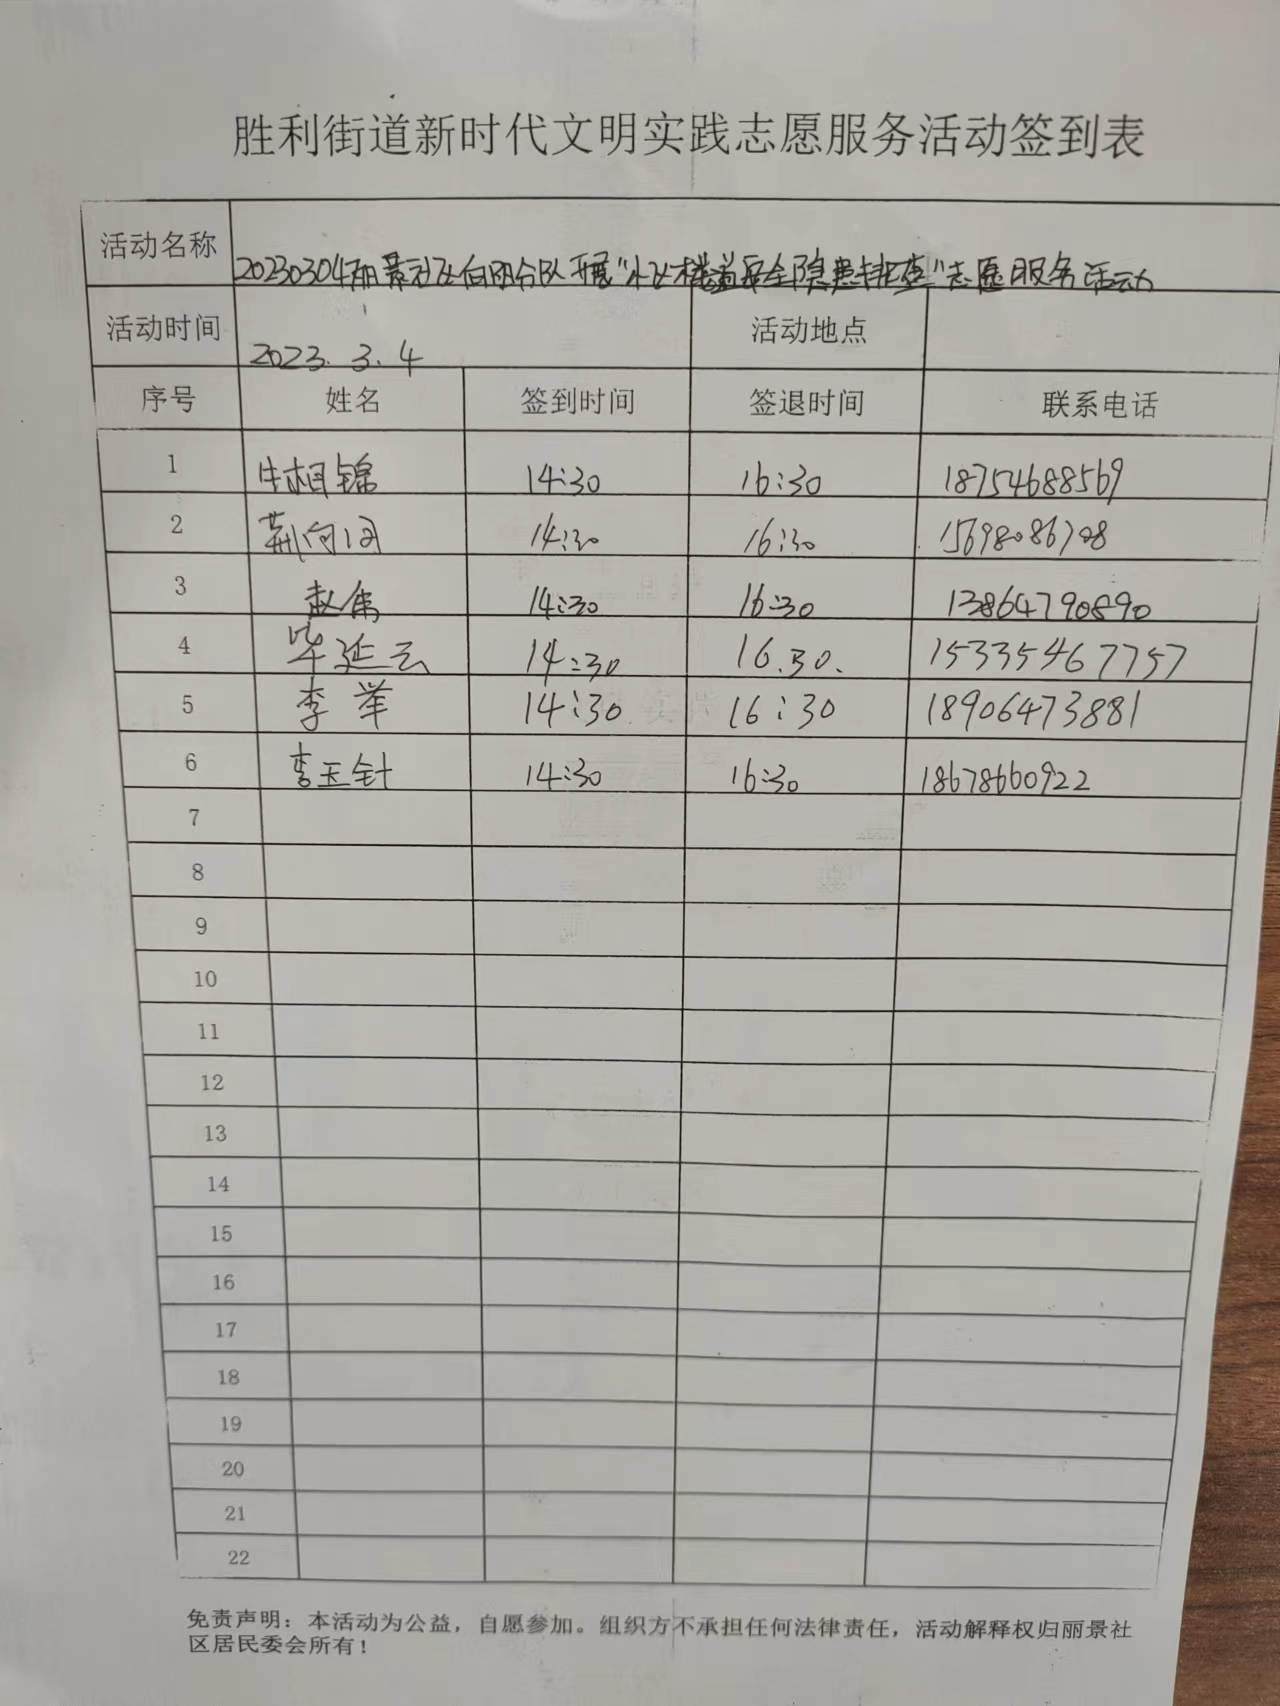 胜利街道新时代文明实践志愿服务活动签到表
活动名称 20230304丽景社区向阳分队开展"小区楼道安全隐患排查"志愿服务活动
活动时间 2023.3.4 活动地点
序号 姓名 签到时间 签退时间 联系电话
1 牛相锦 14:30 16:30 18754688569
2 荆向 14:30 16:30 15698086708
3 赵伟 14:30 16:30 13864790890
4 毕延云 14:30 16.30. 15335467757
5 李举 14:30 16:30 18906473881
6 李玉针 14:30 16:30 18678660922
7
8
9
10
11
12
13
14
15
16
17
18
19
20
21
22
免责声明：本活动为公益，自愿参加。组织方不承担任何法律责任，活动解释权归丽景社
区居民委会所有！